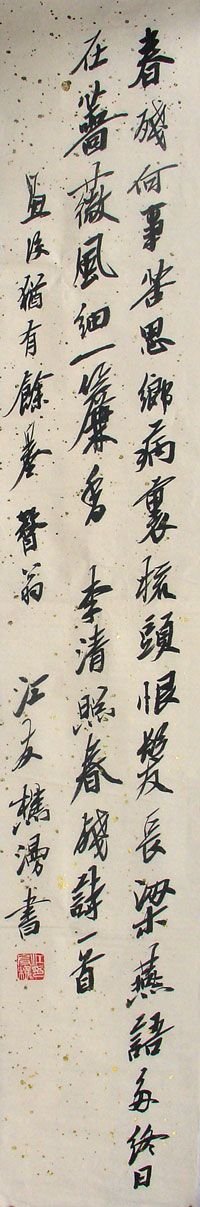 春殘何事苦思鄉病裏梳頭恨髮長梁燕語多終日
在薔薇風細一簾香 李清照春殘詩一首
猶有餘 翁 江友樵漫書